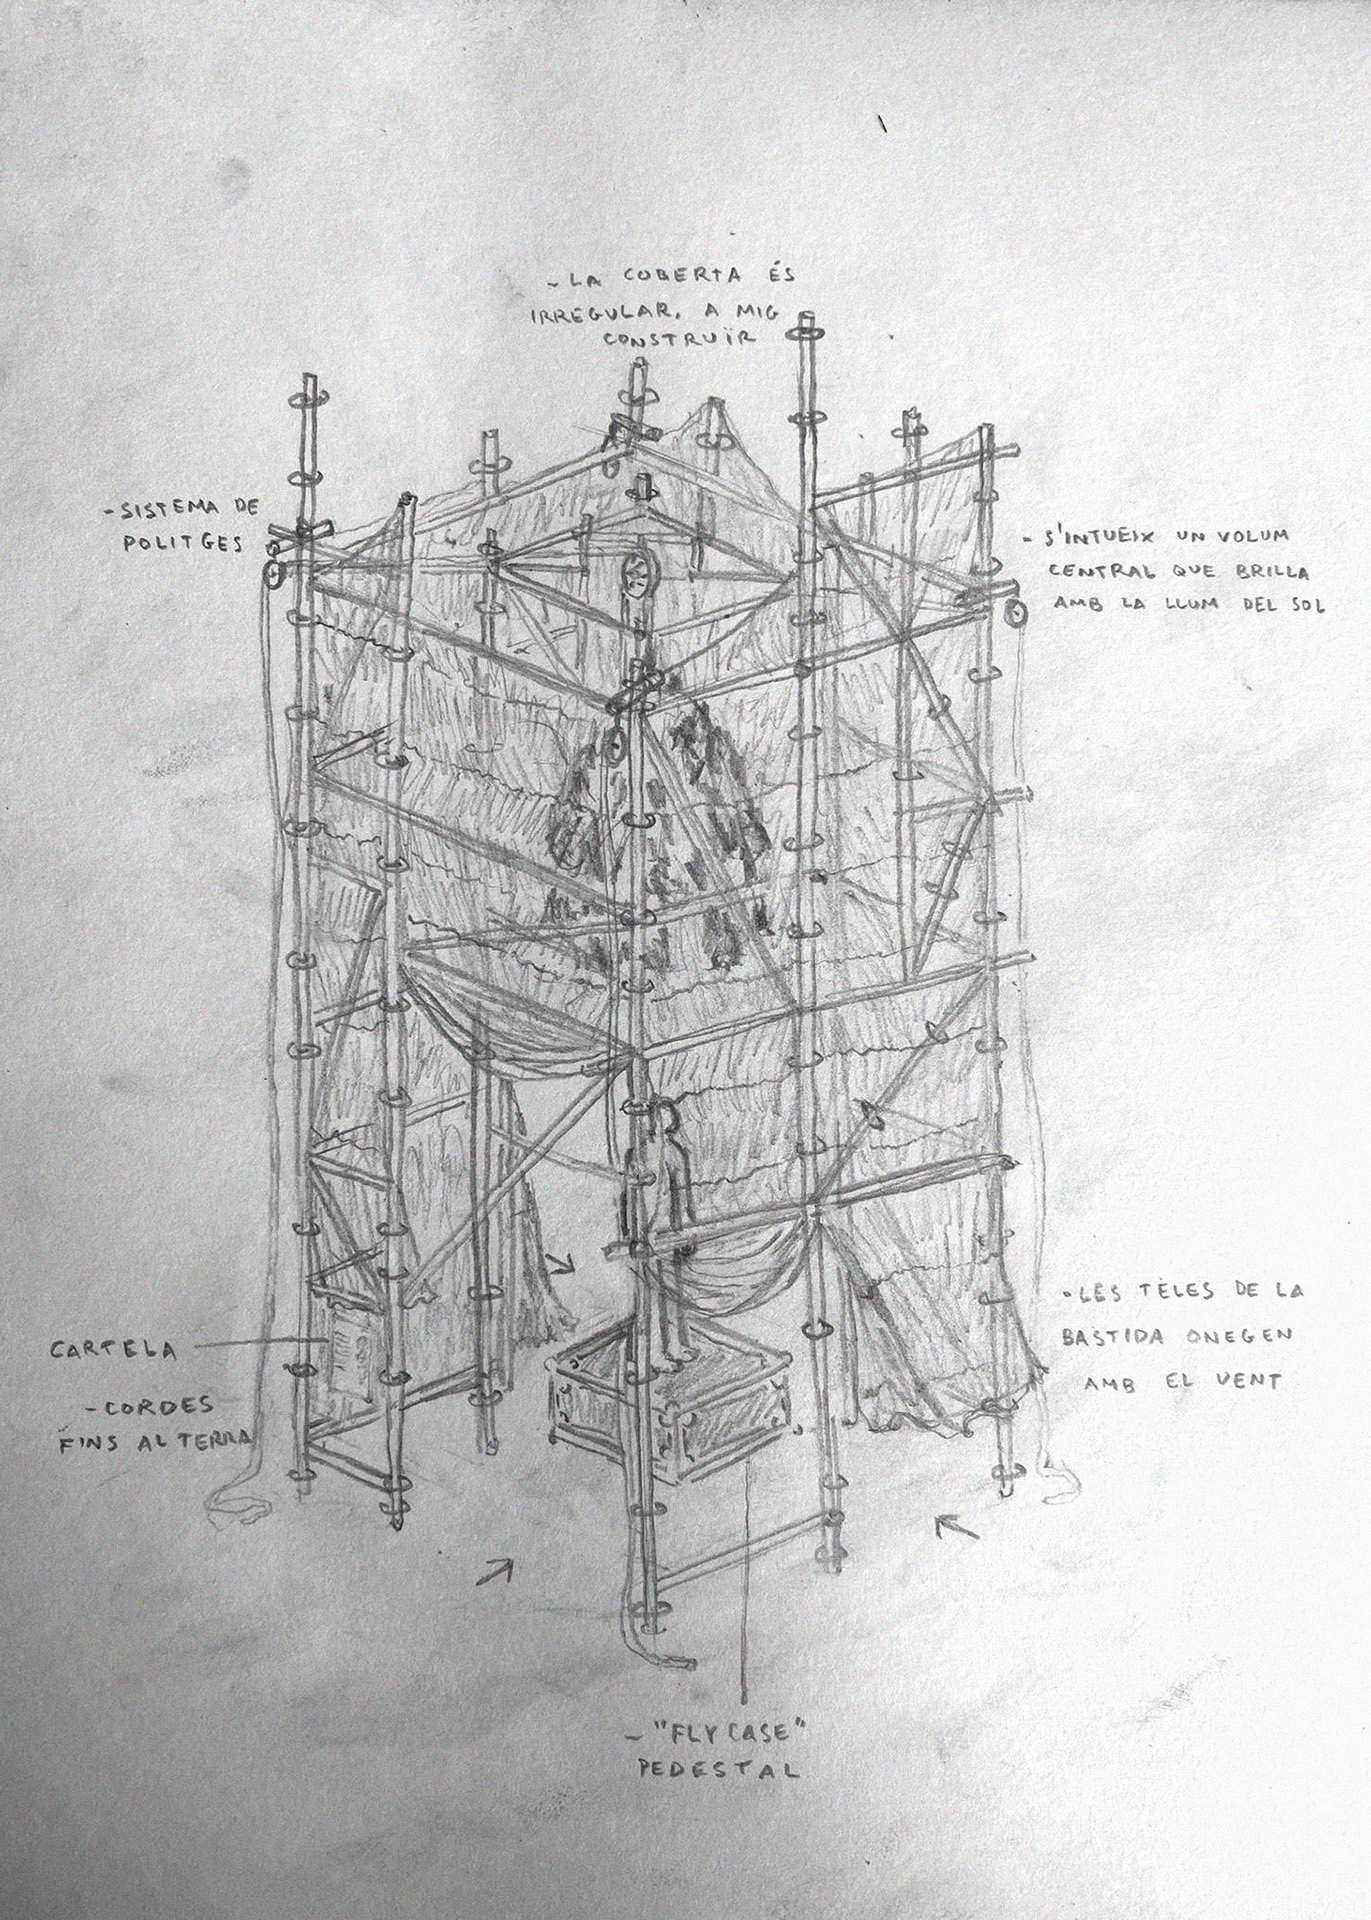 - LA COBERTA ÉS
IRREGULAR, A MIG
CONSTRUÏR
- SISTEMA DE
POLITGES
- S'INTUEIX UN VOLUM
CENTRAL QUE BRILLA
AMB LA LLUM DEL SOL
- LES TELES DE LA
BASTIDA ONEGEN
AMB EL VENT
CARTELA
- CORDES
FINS AL TERRA
- "FLYCASE"
PEDESTAL